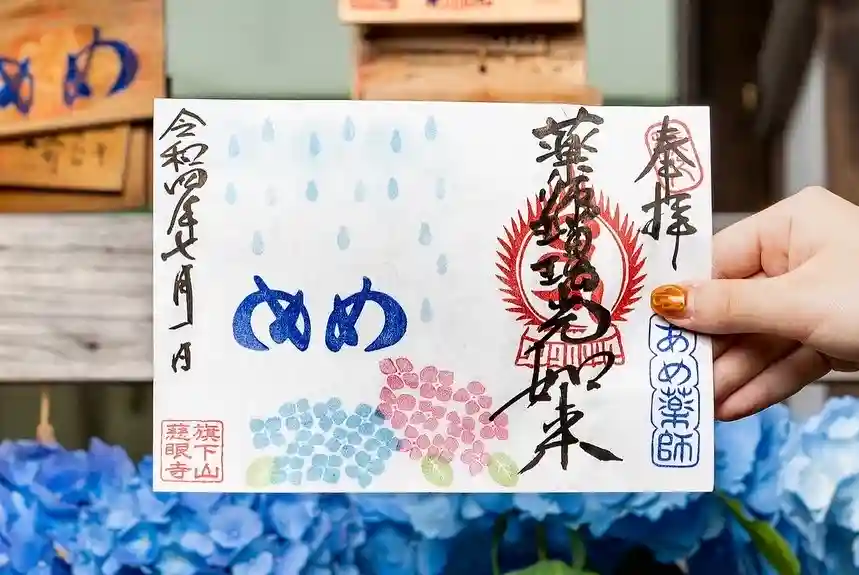 奉拝
あめ薬師
薬師瑠璃光如来
めめ
令和四年七月一日
旗下山
慈眼寺
めめ